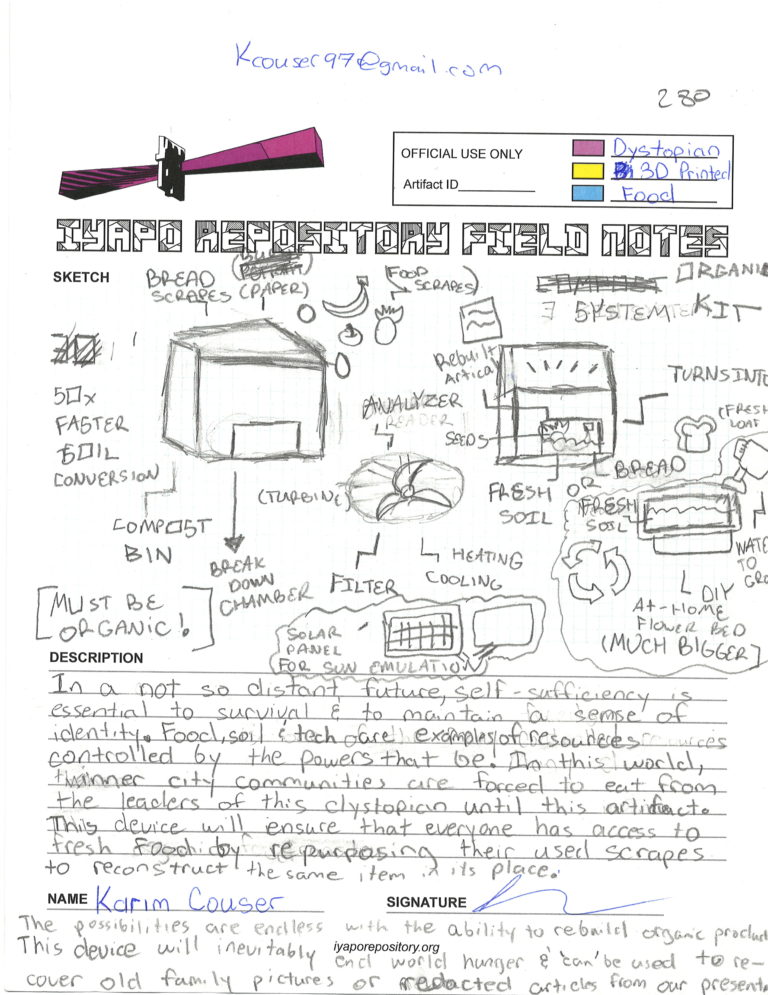 Kcouser97@gmail.com
280
OFFICIAL USE ONLY
Artifact ID
Dystopian
3D Printed
Food
IYAPO REPOSITORY FIELD NOTES
SKETCH
BREAD
SCRAPES
(PAPER)
(FOOD
SCRAPES)
ORGANIC
SYSTEM
KIT
50x
FASTER
SOIL
CONVERSION
ANALYZER
READER
Rebuilt
Artical
TURNS INTO
(FRESH
LOAF
SEEDS
BREAD
(TURBINE)
FRESH
SOIL
OR
FRESH
SOIL
COMPOST
BIN
BREAK
DOWN
CHAMBER
FILTER
HEATING
COOLING
WATE
TO
GRO
DIY
At-Home
FLOWER BED
(MUCH BIGGER]
[MUST BE
ORGANIC!]
SOLAR
PANEL
FOR SUN EMULATION
DESCRIPTION
In a not so distant future, self-sufficiency is
essential to survival & to maintain a sense of
identity. Food, soil & tech are examples of resources
controlled by the powers that be. In this world,
inner city communities are forced to eat from
the leaders of this dystopian until this artifact.
This device will ensure that everyone has access to
fresh Food by repurposing their used scrapes
to reconstruct the same item in its place.
NAME Karim Couser
SIGNATURE
The possibilities are endless with the ability to rebuild organic product
This device will inevitably end world hunger & can be used to re-
iyaporepository.org
cover old family pictures or redacted articles from our present